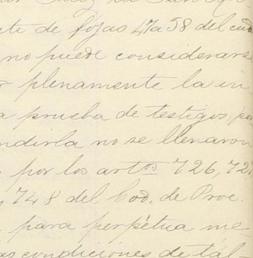 te de fojas 47 a 58 del cua
no puede considerarse
r plenamente la in
a prueba de testigos, por
ndirla no se llenaron
por los artos 726, 727
, 748 del Cod. de Proc.
para perpétua me
as condiciones de tal-